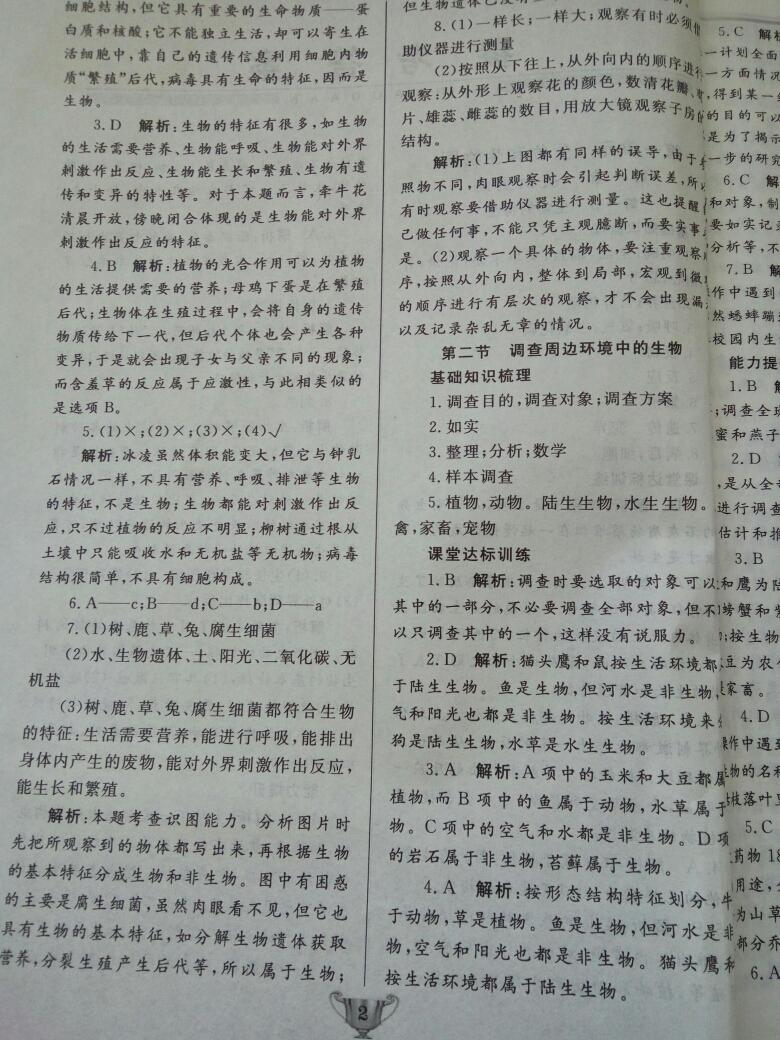 细胞结构,但它具有重要的生命物质——蛋
白质和核酸;它不能独立生活,却可以寄生在
活细胞中,靠自己的遗传信息利用细胞内物
质“繁殖”后代,病毒具有生命的特征,因而是
生物。
3.D 解析:生物的特征有很多,如生物
的生活需要营养、生物能呼吸、生物能对外界
刺激作出反应、生物能生长和繁殖、生物有遗
传和变异的特性等。对于本题而言,牵牛花
清晨开放,傍晚闭合体现的是生物能对外界
刺激作出反应的特征。
4.B 解析:植物的光合作用可以为植物
的生活提供需要的营养;母鸡下蛋是在繁殖
后代;生物体在生殖过程中,会将自身的遗传
物质传给下一代,但后代个体也会产生各种
变异,于是就会出现子女与父亲不同的现象;
而含羞草的反应属于应激性,与此相类似的
是选项B。
5.(1)×;(2)×;(3)×;(4)√
解析:冰凌虽然体积能变大,但它与钟乳
石情况一样,不具有营养、呼吸、排泄等生物
的特征,不是生物;生物都能对刺激作出反
应,只不过植物的反应不明显;柳树通过根从
土壤中只能吸收水和无机盐等无机物;病毒
结构很简单,不具有细胞构成。
6.A——c;B——d;C——b;D——a
7.(1)树、鹿、草、兔、腐生细菌
(2)水、生物遗体、土、阳光、二氧化碳、无
机盐
(3)树、鹿、草、兔、腐生细菌都符合生物
的特征:生活需要营养,能进行呼吸,能排出
身体内产生的废物,能对外界刺激作出反应,
能生长和繁殖。
解析:本题考查识图能力。分析图片时
先把所观察到的物体都写出来,再根据生物
的基本特征分成生物和非生物。图中有困惑
的主要是腐生细菌,虽然肉眼看不见,但它也
具有生物的基本特征,如分解生物遗体获取
营养,分裂生殖产生后代等,所以属于生物;
8.(1)一样长;一样大;观察有时必须借
助仪器进行测量
(2)按照从下往上,从外向内的顺序进行
观察:从外形上观察花的颜色,数清花瓣、
片、雄蕊、雌蕊的数目,用放大镜观察子房
结构。
解析:(1)上图都有同样的误导,由于
照物不同,肉眼观察时会引起判断误差,所
有时观察要借助仪器进行测量。这也提醒
己做任何事,不能只凭主观臆断,而要实事
是。(2)观察一个具体的物体,要注重观察
序,按照从外向内,整体到局部,宏观到微
的顺序进行有层次的观察,才不会出现漏
以及记录杂乱无章的情况。
第二节 调查周边环境中的生物
基础知识梳理
1.调查目的,调查对象;调查方案
2.如实
3.整理;分析;数学
4.样本调查
5.植物,动物。陆生生物,水生生物。
禽,家畜,宠物
课堂达标训练
1.B 解析:调查时要选取的对象可以
其中的一部分,不必要调查全部对象,但不
以只调查其中的一个,这样没有说服力。
2.D 解析:猫头鹰和鼠按生活环境都
于陆生生物。鱼是生物,但河水是非生物,
气和阳光也都是非生物。按生活环境来
狗是陆生生物,水草是水生生物。
3.A 解析:A项中的玉米和大豆都属
植物,而B项中的鱼属于动物,水草属于
物。C项中的空气和水都是非生物。D项
的岩石属于非生物,苔藓属于生物。
4.A 解析:按形态结构特征划分,牛
于动物,草是植物。鱼是生物,但河水是非
物,空气和阳光也都是非生物。猫头鹰和
按生活环境都属于陆生生物。
2
5.C 解析
一计划全面
一方面情况
,得到某一
的目的可以
是为了揭示
一步的研究
6.C 解
和对象,制
要如实记录
分析等,不
7.B 解
作中遇到
然蟋蟀
校园内生
能力提
1.B 解
;调查全
蜜和燕子
2.D
,是从全
进行调查
估计和推
3.B
和鹰为陆
螃蟹和
;按生物
豆为农
家畜。
4.D
操作中遇到
物的名
枝落叶
5.C
药物18
用途,
为山草
部分乔
6.A